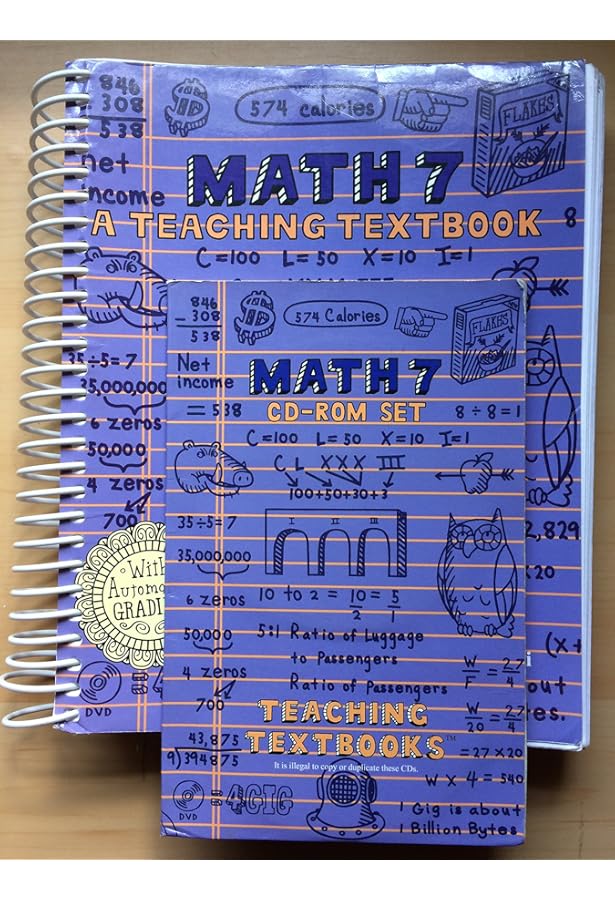 846
308
538
$
574 calories
FLAKES
net
income
MATH 7
A TEACHING TEXTBOOK
8
C=100 L=50 X=10 I=1
35÷5=7
35,000,000
6 zeros
50,000
4 zeros
700
With
Automa
GRADI
DVD
2,829
x20
(x+
out
es.
846
- 308
538
$
574 Calories
FLAKES
Net
income
= 538
MATH 7
CD-ROM SET
8 ÷ 8 = 1
C=100 L=50 X=10 I=1
C L XXX III
100+50+30+3
I II III
35÷5=7
35,000,000
6 zeros
50,000
4 zeros
700
10 to 2 = 10/2 = 5/1
5:1 Ratio of Luggage
to Passengers
Ratio of Passengers
W/F = 27/4
W/20 = 27/4
= 27 x 20
W x 4 = 540
TEACHING
TEXTBOOKS™
It is illegal to copy or duplicate these CDs.
43,875
9)394875
DVD
=4GIG
1 Gig is about
1 Billion Bytes